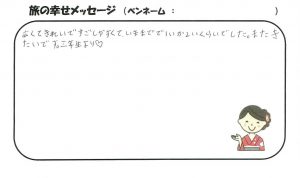 旅の幸せメッセージ （ペンネーム：　　　　　　）
よくてきれいですごしやすくていままでで1いか2いくらいでした。またき
たいです。三年生より♡